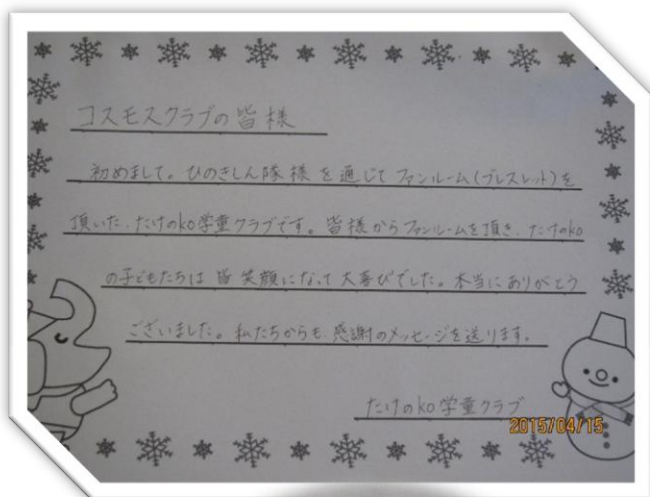 コスモスクラブの皆様
初めまして。ひのきしん隊様を通じてファンルーム(ブレスレット)を
頂いた、たけのko学童クラブです。皆様からファンルームを頂き、たけのko
の子どもたちは皆笑顔になって大喜びでした。本当にありがとう
ございました。私たちからも、感謝のメッセージを送ります。
たけのko学童クラブ
2015/04/15